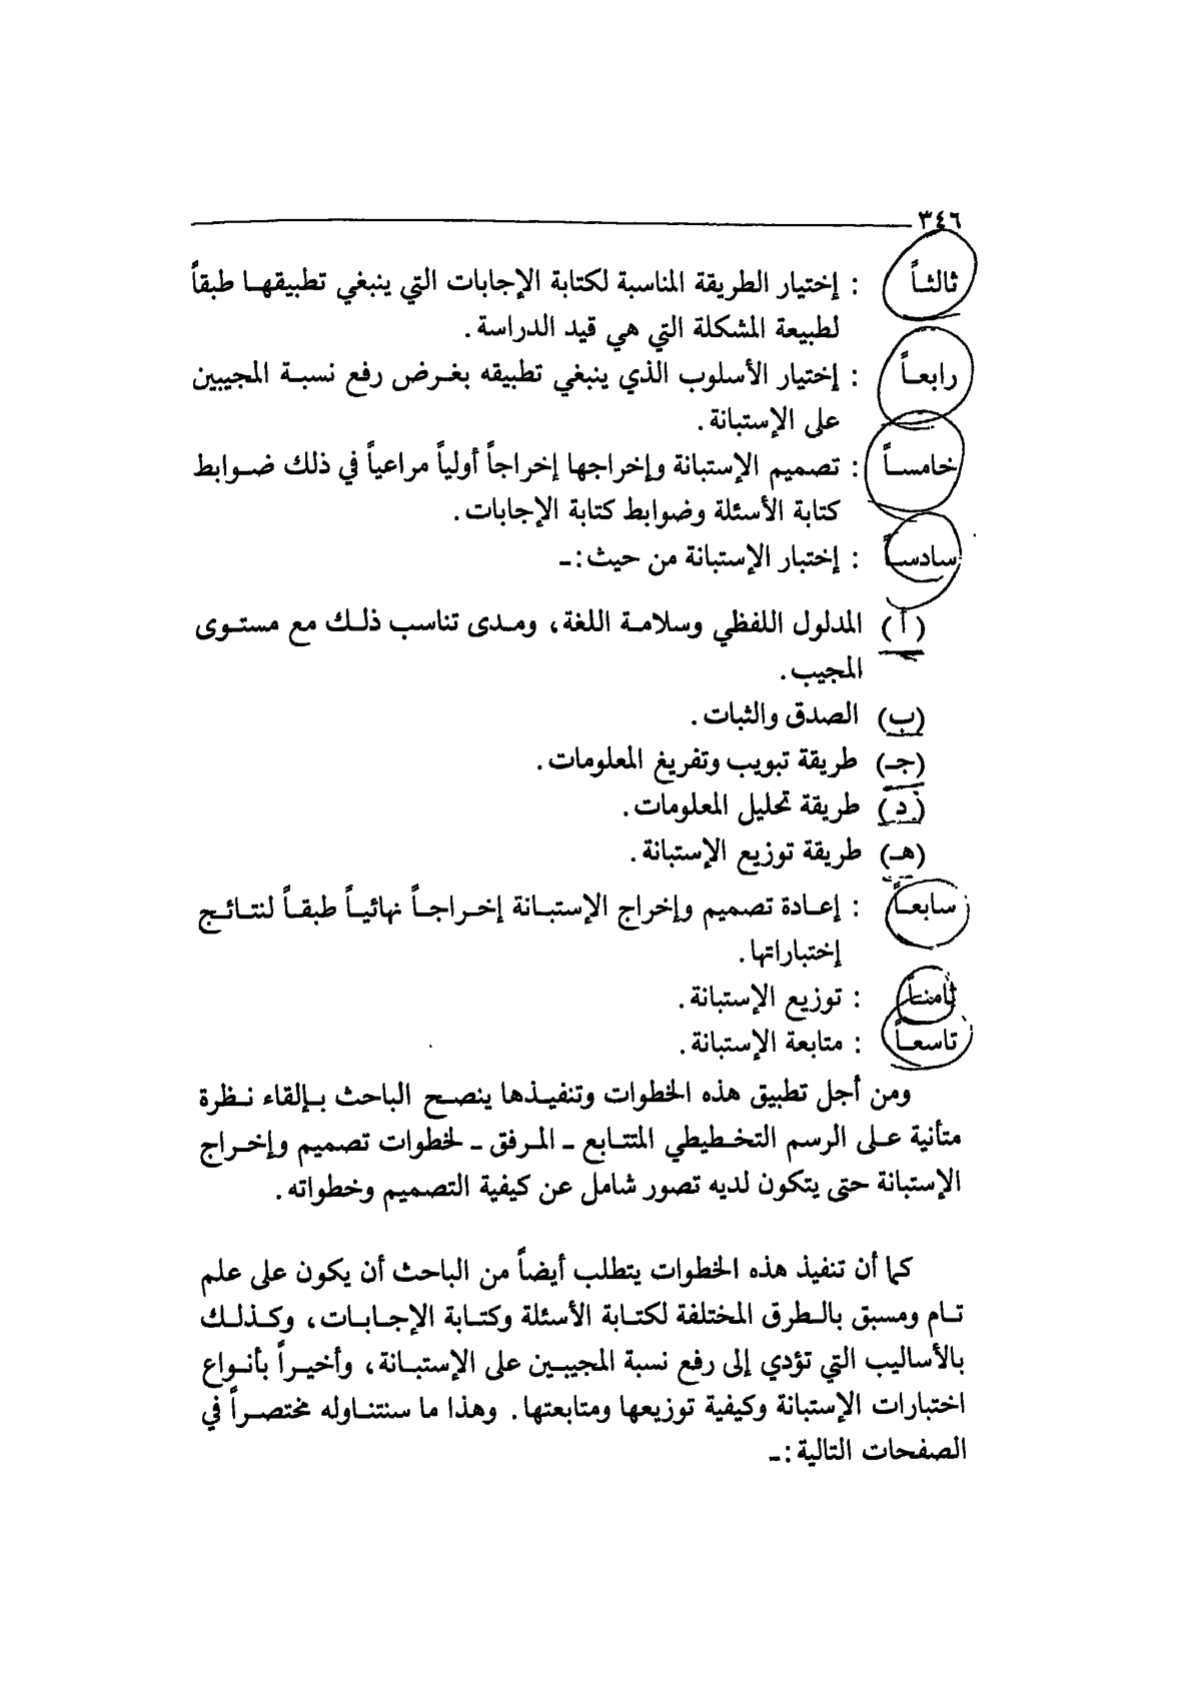 ٣٤٦
ثالثاً : إختيار الطريقة المناسبة لكتابة الإجابات التي ينبغي تطبيقها طبقاً
لطبيعة المشكلة التي هي قيد الدراسة .
رابعاً : إختيار الأسلوب الذي ينبغي تطبيقه بغرض رفع نسبة المجيبين
على الإستبانة .
خامساً : تصميم الإستبانة وإخراجها إخراجاً أولياً مراعياً في ذلك ضوابط
كتابة الأسئلة وضوابط كتابة الإجابات .
سادساً : إختبار الإستبانة من حيث :ـ
(أ) المدلول اللفظي وسلامة اللغة ، ومدى تناسب ذلك مع مستوى
المجيب .
(ب) الصدق والثبات .
(جـ) طريقة تبويب وتفريغ المعلومات .
(د) طريقة تحليل المعلومات .
(هـ) طريقة توزيع الإستبانة .
سابعاً : إعادة تصميم وإخراج الإستبانة إخراجاً نهائياً طبقاً لنتائج
إختباراتها .
ثامناً : توزيع الإستبانة .
تاسعاً : متابعة الإستبانة .
ومن أجل تطبيق هذه الخطوات وتنفيذها ينصح الباحث بإلقاء نظرة
متأنية على الرسم التخطيطي المتتابع ـ المرفق ـ لخطوات تصميم وإخراج
الإستبانة حتى يتكون لديه تصور شامل عن كيفية التصميم وخطواته .
كما أن تنفيذ هذه الخطوات يتطلب أيضاً من الباحث أن يكون على علم
تام ومسبق بالطرق المختلفة لكتابة الأسئلة وكتابة الإجابات ، وكذلك
بالأساليب التي تؤدي إلى رفع نسبة المجيبين على الإستبانة ، وأخيراً بأنواع
اختبارات الإستبانة وكيفية توزيعها ومتابعتها . وهذا ما سنتناوله مختصراً في
الصفحات التالية :ـ